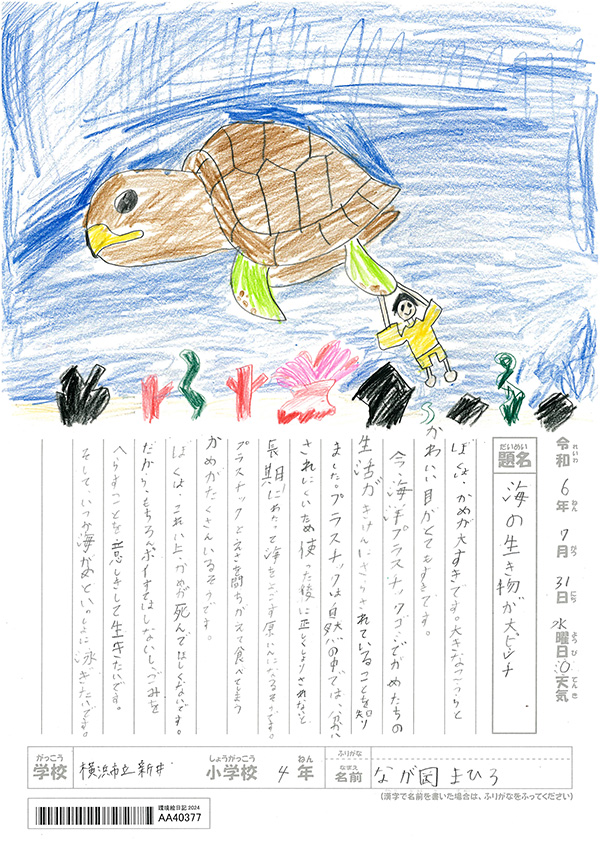 令和6年7月31日水曜日 天気
れいわ ねん がつ にち ようび てんき
だいめい
題名
海の生き物が大ピンチ
ぼくは、かめが大すきです。大きなこうらと
かわいい目がとてもすきです。
今、海洋プラスチックゴミでかめたちの
生活がきけんにさらされていることを知り
ました。プラスチックは自然の中では、分かい
されにくいため使った後に正しくしょりされないと
長期にわたって海をよごす原いんになるそうです。
プラスチックとえさを間ちがえて食べてしまう
かめがたくさんいるそうです。
ぼくは、これい上、かめが死んでほしくないです。
だから、もちろんポイすてはしないし、ゴミを
へらすことを意しきして生きたいです。
そして、いつか海がめといっしょに泳ぎたいです。
がっこう
学校
横浜市立新井
しょうがっこう
小学校
4
ねん
年
ふりがな
なまえ
名前
なが岡 まひろ
(漢字で名前を書いた場合は、ふりがなをふってください)
環境絵日記 2024
AA40377